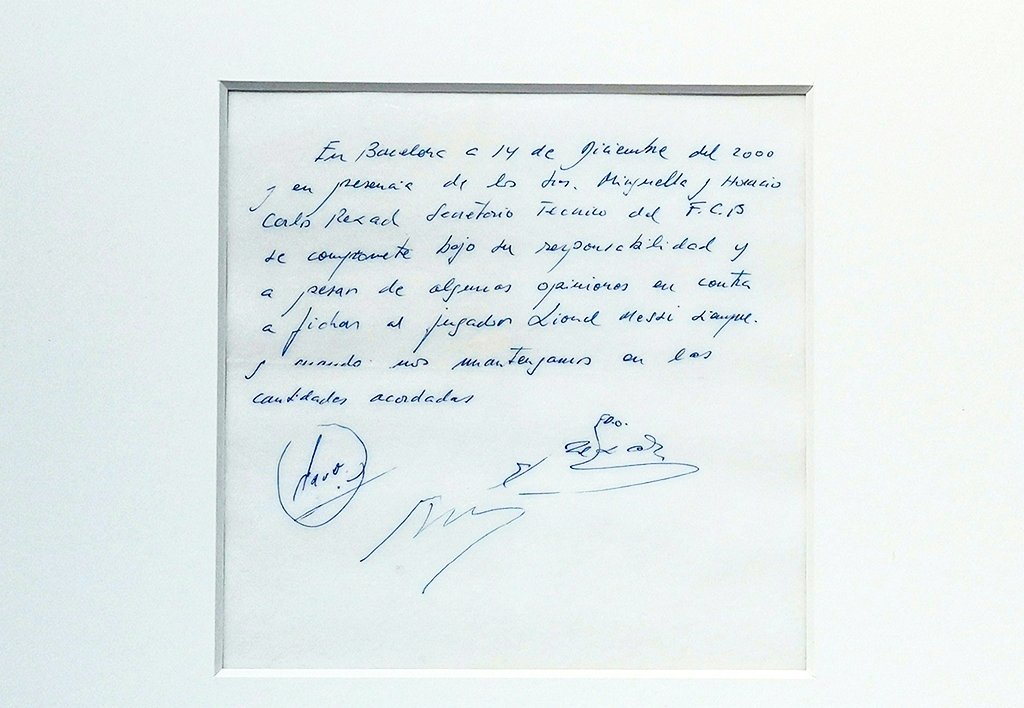 En Barcelona a 14 de Diciembre del 2000
y en presencia de los Sres. Minguella y Horacio
Carlos Rexach Secretario Tecnico del F.C.B
se compromete bajo su responsabilidad y
a pesar de algunas opiniones en contra
a fichar al jugador Lionel Messi siempre
y cuando nos mantengamos en las
cantidades acordadas
Fdo.